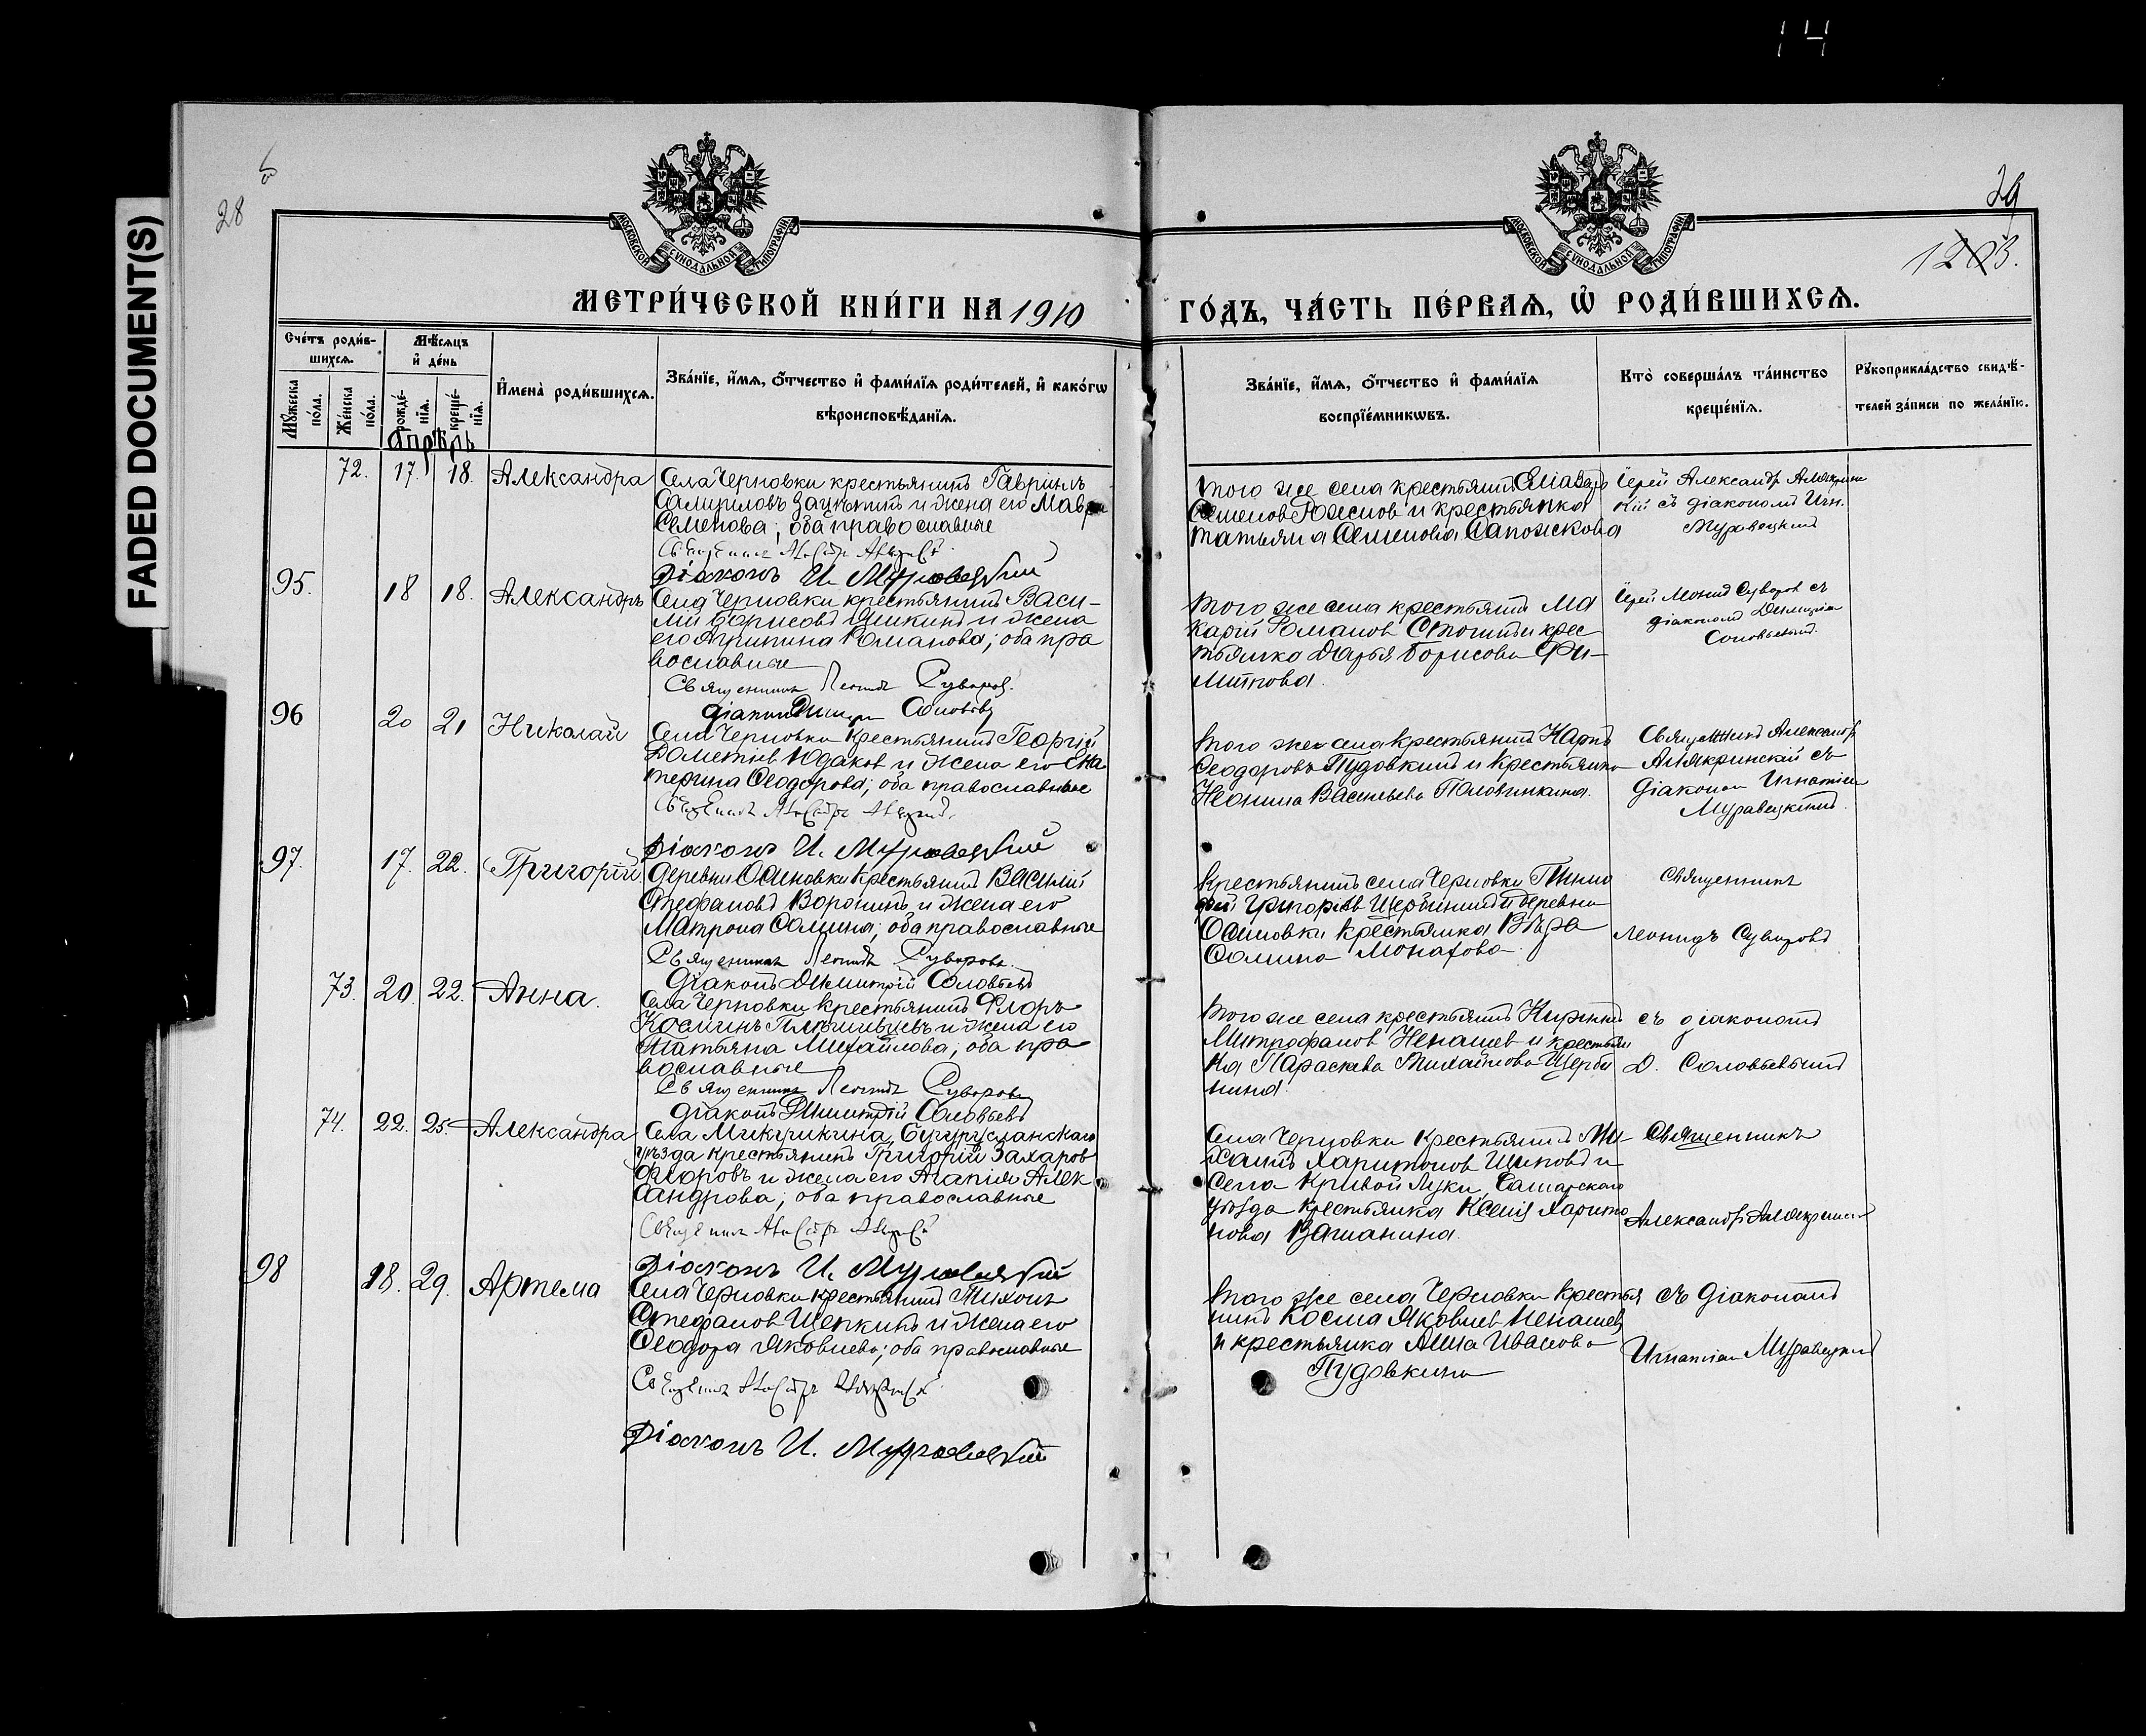 14
FADED DOCUMENT(S)
28
29
1203.
МОСКОВСКОЙ СѴНОДАЛЬНОЙ ТИПОГРАФІИ
МОСКОВСКОЙ СѴНОДАЛЬНОЙ ТИПОГРАФІИ
МЕТРИ́ЧЕСКОЙ КНИ́ГИ НА 1910
ГО́ДЪ, ЧА́СТЬ ПЕ́РВАѦ, Ѡ҆ РОДИ́ВШИХСѦ.
Сче́тъ роди́в-
шихсѧ.
Мꙋ́жеска по́ла.
Же́нска по́ла.
Мѣ́сѧцъ
и҆ де́нь
рожде́-нїѧ.
креще́-нїѧ.
И҆мена̀ роди́вшихсѧ.
Зва́нїе, и҆́мѧ, ѻ҆́тчество и҆ фами́лїѧ роди́телей, и҆ како́гѡ
вѣроисповѣ́данїѧ.
Зва́нїе, и҆́мѧ, ѻ҆́тчество и҆ фами́лїѧ
воспрїе́мникѡвъ.
Кто̀ соверша́лъ та́инство
креще́нїѧ.
Рꙋкоприкла́дство свидѣ́-
телей за́писи по жела́нїю.
Апрѣль
72. 17. 18. Александра
Села Черновки крестьянинъ Гавріилъ
и жена его Мавра
Семенова; оба православные
Діаконъ И. Муравецкій
того же села крестьянинъ
Семенов и крестьянка
Татьяна Семенова Сапожскова
Іерей Александр
кій съ діаконом Игн.
Муравецкимъ
95. 18 18. Александръ
Села Черновки крестьянинъ Васи-
лій Борисовъ и жена
его Агрипина Романова; оба пра
вославные
Священникъ Леонидъ Суворов.
діаконъ Димитр Соловьевъ
того же села крестьянинъ Ма
карій Романов и крес
тьянка Дарья Борисова Фи-
Іерей Леонид Суворов съ
діакономъ Димитріем
Соловьевымъ.
96 20 21 Николай
Села Черновки крестьянинъ Георгій
Дометіев Юдаков и жена его Ека
терина Феодорова; оба православные
Діаконъ И. Муравецкій
того же села крестьянинъ Карпъ
Феодоровъ Пудовкинъ и крестьянка
Неонила Васильева Половинкина.
Священникъ Александръ
Алякринскій съ
діаконом Игнатіем
Муравецкимъ.
97. 17. 22. Григорій
Деревни Осиновки крестьянинъ Василій
Стефановъ Воронинъ и жена его
Матрона Солмина; оба православные
Священникъ Леонидъ Суворовъ.
Діаконъ Димитрій Соловьевъ
Крестьянинъ села Черновки Тимо
фей Григорьев Щербининъ и деревни
Осиновки крестьянка Вѣра
Монахова
Священникъ
Леонидъ Суворовъ
73. 20. 22. Анна.
Села Черновки крестьянинъ Флоръ
Косминъ и жена его
Татьяна Михайлова; оба пра
вославные
Священникъ Леонидъ Суворовъ
діаконъ Димитрій Соловьевъ
того же села крестьянинъ
Митрофанов Ненашев и крестьян
ка Параскева Михайлова Щерби
нина.
съ діакономъ
Д. Соловьевымъ
74. 22. 25. Александра
Села Микушкина, Бугурусланскаго
уѣзда крестьянинъ Григорій Захаров
Федоровъ и жена его Агапія Алек
сандрова; оба православные
Діаконъ И. Муравецкій
Села Черновки крестьянинъ Ми-
хаилъ Харитонов и
села Кривой Луки, Самарскаго
уѣзда крестьянка Ксенія Харито
нова
Священникъ
Александръ Алякринскій
98 18. 29. Артема
Села Черновки крестьянинъ Тихонъ
Стефанов Щепкинъ и жена его
Феодора Яковлева; оба православные
Діаконъ И. Муравецкій
того же села Черновки крестья
нинъ Косма Яковлев Ненашев
и крестьянка Анна Иванова
Пудовкина
съ діакономъ
Игнатіем Муравецкимъ